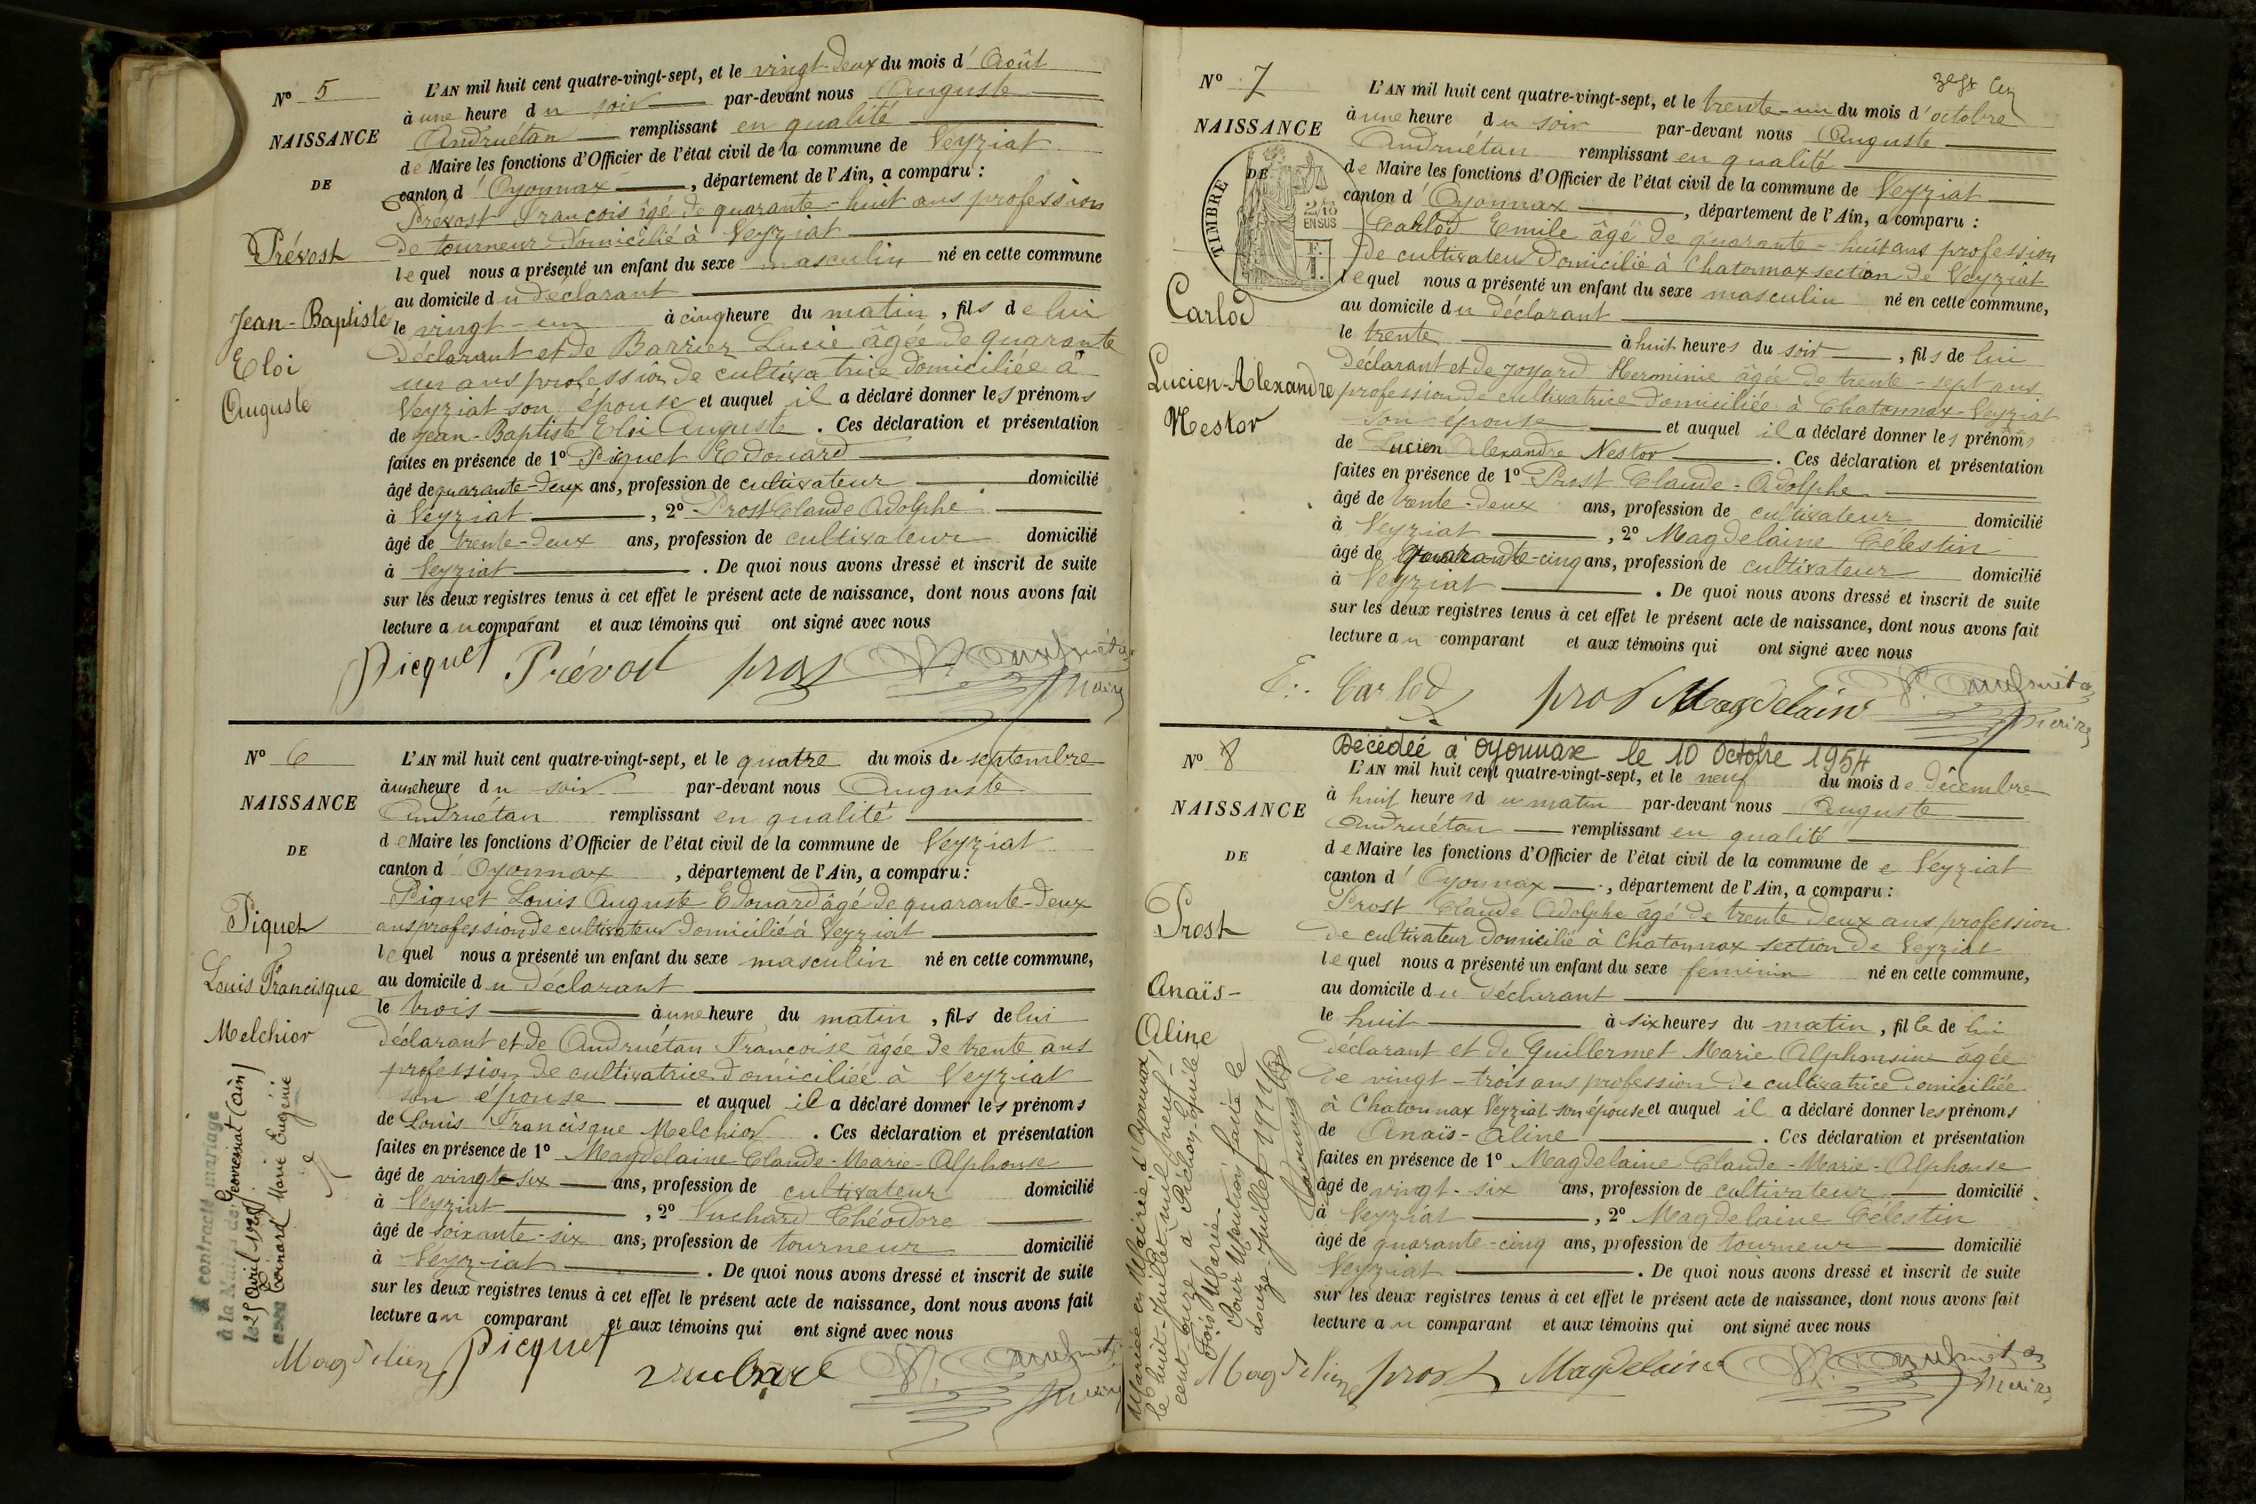 N° 5
NAISSANCE
DE
Prévost
Jean-Baptiste
Eloi
Auguste
L'AN mil huit cent quatre-vingt-sept, et le vingt-deux du mois d'Août
à une heure du soir par-devant nous Auguste
Andruétan remplissant en qualité
de Maire les fonctions d'Officier de l'état civil de la commune de Veyziat
canton d'Oyonnax, département de l'Ain, a comparu :
Prévost François âgé de quarante-huit ans profession
de tourneur domicilié à Veyziat
lequel nous a présenté un enfant du sexe masculin né en cette commune
au domicile du déclarant
le vingt-un à cinq heure du matin, fils de lui
déclarant et de Barrier Lucie âgée de quarante
un ans profession de cultivatrice domiciliée à
Veyziat son épouse et auquel il a déclaré donner les prénoms
de Jean-Baptiste Eloi Auguste. Ces déclaration et présentation
faites en présence de 1° Piquet Edouard
âgé de quarante-deux ans, profession de cultivateur domicilié
à Veyziat, 2° Prost Claude Adolphe
âgé de trente-deux ans, profession de cultivateur domicilié
à Veyziat. De quoi nous avons dressé et inscrit de suite
sur les deux registres tenus à cet effet le présent acte de naissance, dont nous avons fait
lecture au comparant et aux témoins qui ont signé avec nous
Picquet Prévost prost Andruétan
Maire
N° 6
NAISSANCE
DE
Piquet
Louis Francisque
Melchior
A contracté mariage
à la Mairie de Geovressiat (Ain)
le 25 Avril
avec Cornard Marie Eugénie
L'AN mil huit cent quatre-vingt-sept, et le quatre du mois de septembre
à une heure du soir par-devant nous Auguste
Andruétan remplissant en qualité
de Maire les fonctions d'Officier de l'état civil de la commune de Veyziat
canton d'Oyonnax, département de l'Ain, a comparu :
Piquet Louis Auguste Edouard âgé de quarante-deux
ans profession de cultivateur domicilié à Veyziat
lequel nous a présenté un enfant du sexe masculin né en cette commune,
au domicile du déclarant
le trois à une heure du matin, fils de lui
déclarant et de Andruétan Françoise âgée de trente ans
profession de cultivatrice domiciliée à Veyziat
son épouse et auquel il a déclaré donner les prénoms
de Louis Francisque Melchior. Ces déclaration et présentation
faites en présence de 1° Magdelaine Claude-Marie-Alphonse
âgé de vingt-six ans, profession de cultivateur domicilié
à Veyziat, 2° Vuchard Théodore
âgé de soixante-six ans, profession de tourneur domicilié
à Veyziat. De quoi nous avons dressé et inscrit de suite
sur les deux registres tenus à cet effet le présent acte de naissance, dont nous avons fait
lecture au comparant et aux témoins qui ont signé avec nous
Magdelien Picquet Vuchard Andruétan
Maire
N° 7
NAISSANCE
DE
TIMBRE
2/10
EN SUS
Carlod
Lucien-Alexandre
Nestor
L'AN mil huit cent quatre-vingt-sept, et le trente-un du mois d'octobre
à une heure du soir par-devant nous Auguste
Andruétan remplissant en qualité
de Maire les fonctions d'Officier de l'état civil de la commune de Veyziat
canton d'Oyonnax, département de l'Ain, a comparu :
Carlod Emile âgé de quarante-huit ans profession
de cultivateur domicilié à Chatonnax section de Veyziat
lequel nous a présenté un enfant du sexe masculin né en cette commune,
au domicile du déclarant
le trente à huit heures du soir, fils de lui
déclarant et de Joyard Herminie âgée de trente-sept ans
profession de cultivatrice domiciliée à Chatonnax-Veyziat
son épouse et auquel il a déclaré donner les prénoms
de Lucien Alexandre Nestor. Ces déclaration et présentation
faites en présence de 1° Prost Claude-Adolphe
âgé de trente-deux ans, profession de cultivateur domicilié
à Veyziat, 2° Magdelaine Célestin
âgé de quarante-cinq ans, profession de cultivateur domicilié
à Veyziat. De quoi nous avons dressé et inscrit de suite
sur les deux registres tenus à cet effet le présent acte de naissance, dont nous avons fait
lecture au comparant et aux témoins qui ont signé avec nous
E. Carlod prost Magdelaine Andruétan
Maire
N° 8
NAISSANCE
DE
Prost
Anaïs-
Aline
Mariée en Mairie d'Oyonnax,
le huit-Juillet-mil neuf-
cent-onze à Pichon-Emile
Fois Marie.
Pour Mention faite le
douze-Juillet 1911
Décédée à Oyonnax le 10 Octobre 1954
L'AN mil huit cent quatre-vingt-sept, et le neuf du mois de Décembre
à huit heures du matin par-devant nous Auguste
Andruétan remplissant en qualité
de Maire les fonctions d'Officier de l'état civil de la commune de Veyziat
canton d'Oyonnax, département de l'Ain, a comparu :
Prost Claude Adolphe âgé de trente deux ans profession
de cultivateur domicilié à Chatonnax section de Veyziat
lequel nous a présenté un enfant du sexe féminin né en cette commune,
au domicile du déclarant
le huit à six heures du matin, fille de lui
déclarant et de Guillermet Marie Alphonsine âgée
de vingt-trois ans profession de cultivatrice domiciliée
à Chatonnax Veyziat son épouse et auquel il a déclaré donner les prénoms
de Anaïs-Aline. Ces déclaration et présentation
faites en présence de 1° Magdelaine Claude-Marie-Alphonse
âgé de vingt-six ans, profession de cultivateur domicilié
à Veyziat, 2° Magdelaine Célestin
âgé de quarante-cinq ans, profession de tourneur domicilié
Veyziat. De quoi nous avons dressé et inscrit de suite
sur les deux registres tenus à cet effet le présent acte de naissance, dont nous avons fait
lecture au comparant et aux témoins qui ont signé avec nous
Magdelien prost Magdelaine Andruétan
Maire